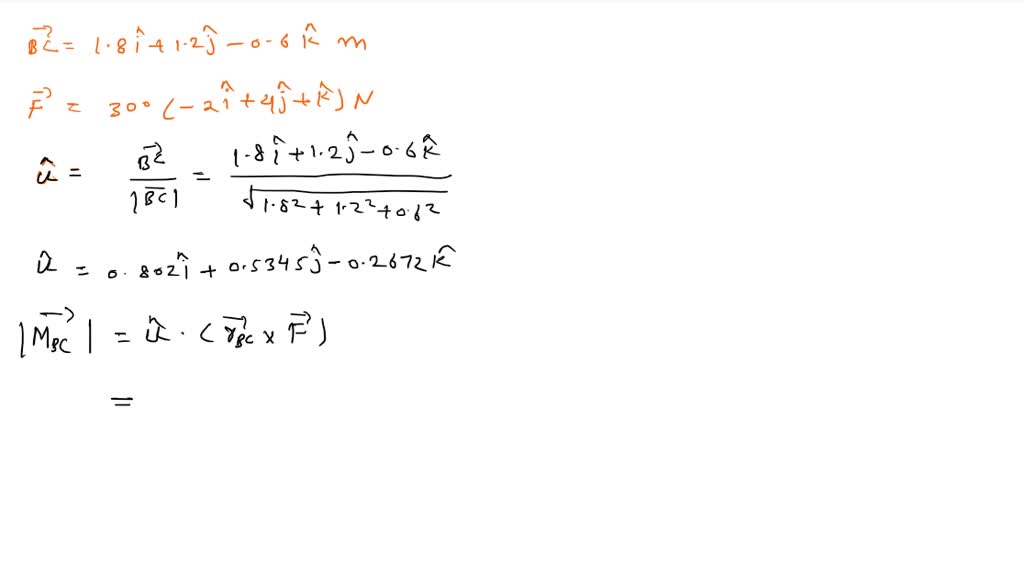 BC⃗ = 1.8 î + 1.2 ĵ - 0.6 k̂ m
F⃗ = 300 (-2 î + 4 ĵ + k̂) N
û = BC⃗ / |BC⃗| = (1.8 î + 1.2 ĵ - 0.6 k̂) / √(1.8² + 1.2² + 0.6²)
û = 0.802 î + 0.5345 ĵ - 0.2672 k̂
|M⃗_BC| = û · (r⃗_BC × F⃗)
=